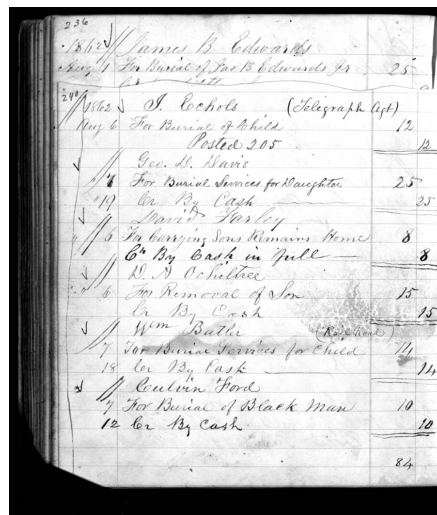 236
1862 James B Edwards
Aug 1 For Burial of Jas B Edwards Jr 25
240 1862 J. Echols (Telegraph Agt)
Aug 6 For Burial of Child 12
Posted 205 12
Geo. D. Davis
" 7 For Burial Services for Daughter 25
" 19 Cr By Cash 25
David Farley
" 6 For Carrying Sons Remains Home 8
Cr By Cash in full 8
D. A Ochiltree
" 6 For Removal of Son 15
Cr By Cash 15
Wm Butler (Rail Road)
7 For Burial Services for Child 14
18 Cr By Cash 14
Culvin Ford
7 For Burial of Black Man 10
12 Cr By Cash 10
84